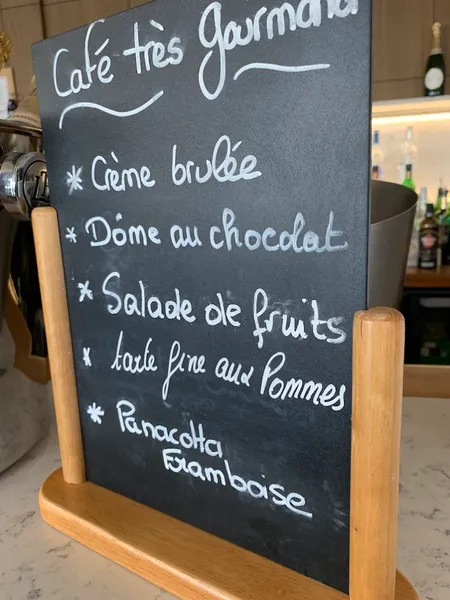 Café très gourmand
* Crème brulée
* Dôme au chocolat
* Salade de fruits
* tarte fine aux Pommes
* Panacotta
Framboise